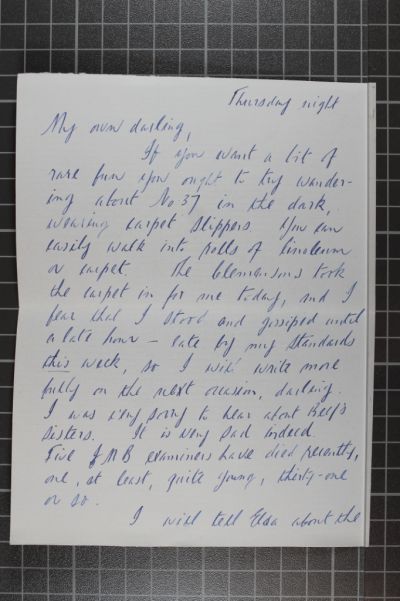 Thursday night
My own darling,
If you want a bit of
rare fun you ought to try wander-
ing about No 37 in the dark,
wearing carpet slippers. You can
easily walk into rolls of linoleum
or carpet. The Clemansons took
the carpet in for me today, and I
fear that I stood and gossiped until
a late hour – late by my standards
this week, so I will write more
fully on the next occasion, darling.
I was very sorry to hear about
sisters. It is very sad indeed.
Five JMB examiners have died recently,
one, at least, quite young, thirty-one
or so.
I will tell Elsa about the